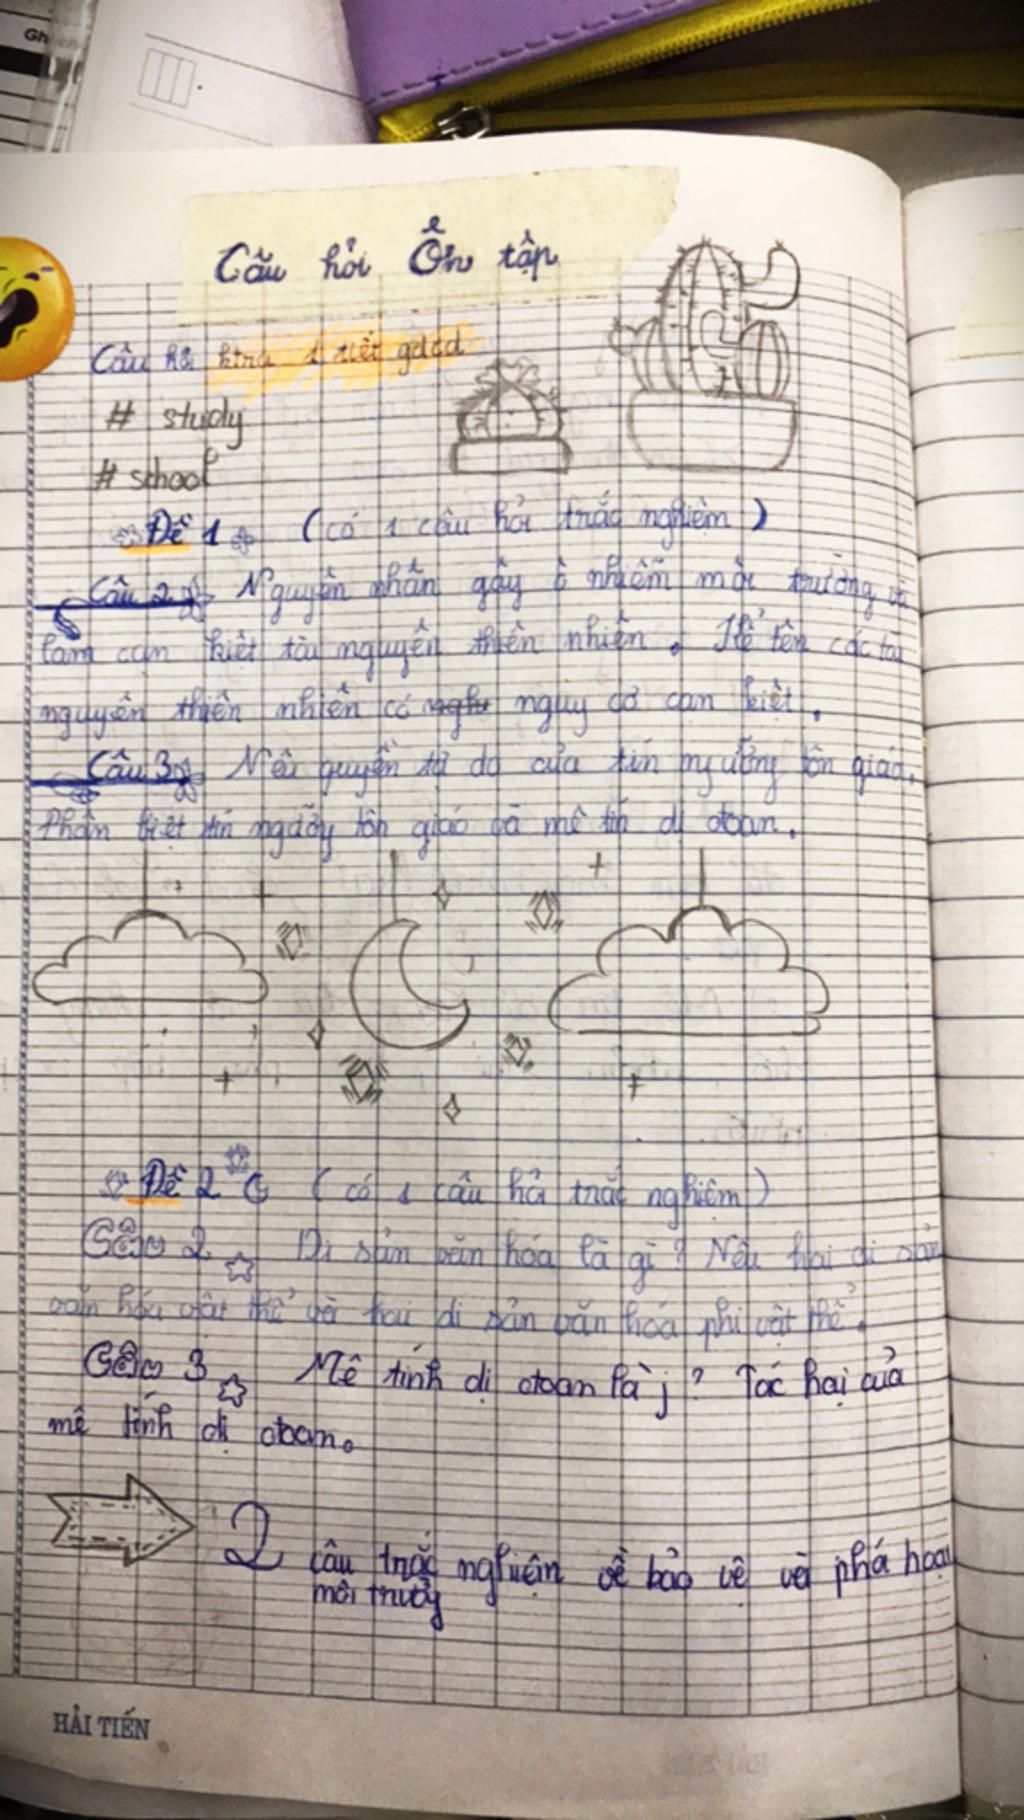 Gh
Câu hỏi Ôn tập
Câu hỏi ktra 1 tiết gdcd
# study
# school
Đề 1 (có 1 câu hỏi trắc nghiệm)
Câu 2 Nguyên nhân gây ô nhiễm môi trường và
làm cạn kiệt tài nguyên thiên nhiên. Kể tên các tài
nguyên thiên nhiên có nguy cơ cạn kiệt.
Câu 3 Nêu quyền tự do của tín ngưỡng tôn giáo.
Phân biệt tín ngưỡng tôn giáo và mê tín dị đoan.
Đề 2 (có 1 câu hỏi trắc nghiệm)
Câu 2 Di sản văn hóa là gì? Nêu hai di sản
văn hóa vật thể và hai di sản văn hóa phi vật thể.
Câu 3 Mê tính dị đoan là j? Tác hại của
mê tính dị đoan.
2 câu trắc nghiệm về bảo vệ và phá hoại
môi trườg
HẢI TIẾN